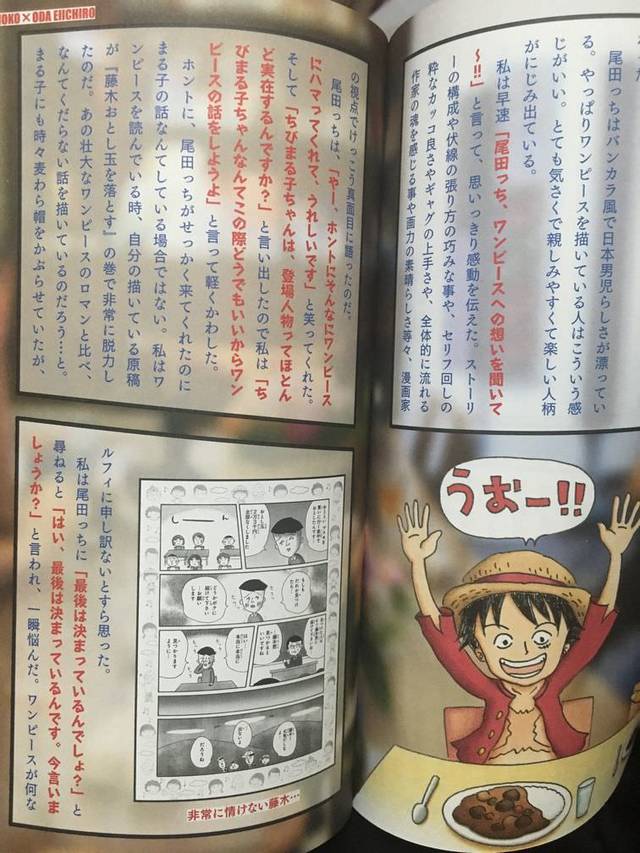 尾田っちはバンカラ風で日本男児らしさが漂ってい
る。やっぱりワンピースを描いている人はこういう感
じがいい。とても気さくで親しみやすくて楽しい人柄
がにじみ出ている。
私は早速「尾田っち、ワンピースへの想いを聞いて
〜!!」と言って、思いっきり感動を伝えた。ストーリ
ーの構成や伏線の張り方の巧みな事や、セリフ回しの
粋なカッコ良さやギャグの上手さや、全体的に流れる
作家の魂を感じる事や画力の素晴らしさ等々、漫画家
うむー!!
OKO×ODA EIICHIRO
の視点でけっこう真面目に語ったのだ。
尾田っちは、「やー、ホントにそんなにワンピース
にハマってくれて、うれしいです」と笑ってくれた。
そして「ちびまる子ちゃんは、登場人物ってほとん
ど実在するんですか?」と言い出したので私は「ち
びまる子ちゃんなんてこの際どうでもいいからワン
ピースの話をしようよ」と言って軽くかわした。
ホントに、尾田っちがせっかく来てくれたのに
まる子の話なんてしている場合ではない。私はワ
ンピースを読んでいる時、自分の描いている原稿
が『藤木おとし玉を落とす』の巻で非常に脱力し
たのだ。あの壮大なワンピースのロマンと比べ、
なんてくだらない話を描いているのだろう…と。
まる子にも時々麦わら帽をかぶらせていたが、
ルフィに申し訳ないとすら思った。
私は尾田っちに「最後は決まっているんでしょ?」と
尋ねると「はい、最後は決まっているんです。今言いま
しょうか?」と言われ、一瞬悩んだ。ワンピースが何な
しーん
だろうね
非常に情けない藤木…